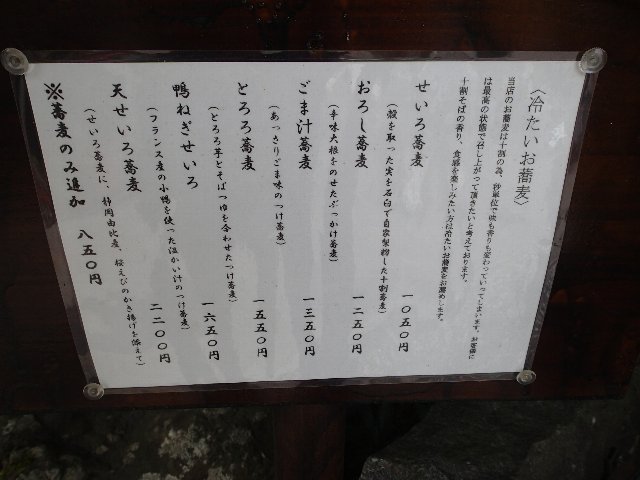 〈冷たいお蕎麦〉
当店のお蕎麦は十割の為、秒単位で味も香りも変わっていってしまいます。お客様に
は最高の状態で召し上がって頂きたいと考えております。
十割そばの香り、食感を楽しみたい方は冷たいお蕎麦をお薦めします。
せいろ蕎麦 一〇五〇円
（殻を取った実を石臼で自家製粉した十割蕎麦）
おろし蕎麦 一二五〇円
（辛味大根をのせたぶっかけ蕎麦）
ごま汁蕎麦 一三五〇円
（あっさりごま味のつけ蕎麦）
とろろ蕎麦 一五五〇円
（とろろ芋とそばつゆを合わせたつけ蕎麦）
鴨ねぎせいろ 一六五〇円
（フランス産の小鴨を使った温かい汁のつけ蕎麦）
天せいろ蕎麦 二二〇〇円
（せいろ蕎麦に、静岡由比産、桜えびのかき揚げを添えて）
※蕎麦のみ追加 八五〇円